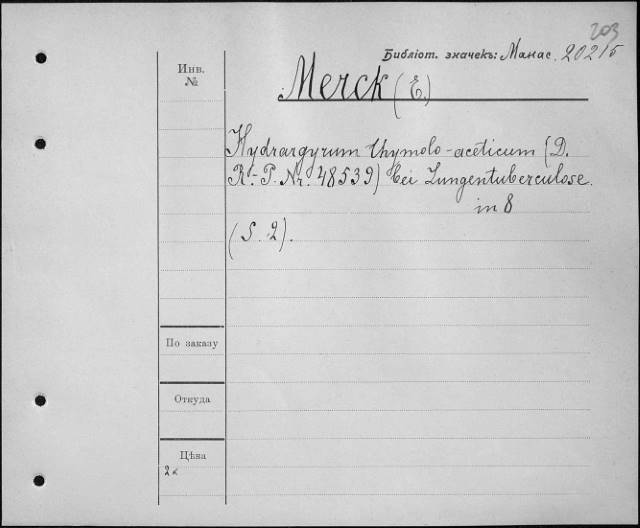 203
Библіот. значекъ: Манас. 20215
Инв.
№
Merck (E.)
Hydrargyrum thymolo-aceticum (D.
R.-P. Nr. 48539) bei Lungentuberculose.
in 8
(S. 2).
По заказу
Откуда
Цѣна